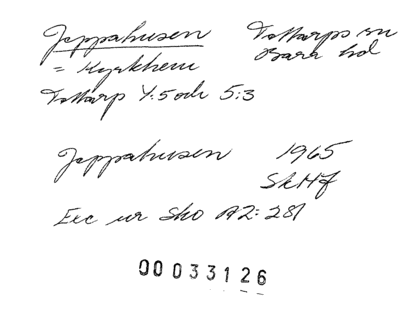 Jeppahusen Tottarps sn
= Kyrkhem Bara hd
Tottarp 4:5 och 5:3
Jeppahusen 1965
SkHf
Exc ur Sko A2:281
00033126